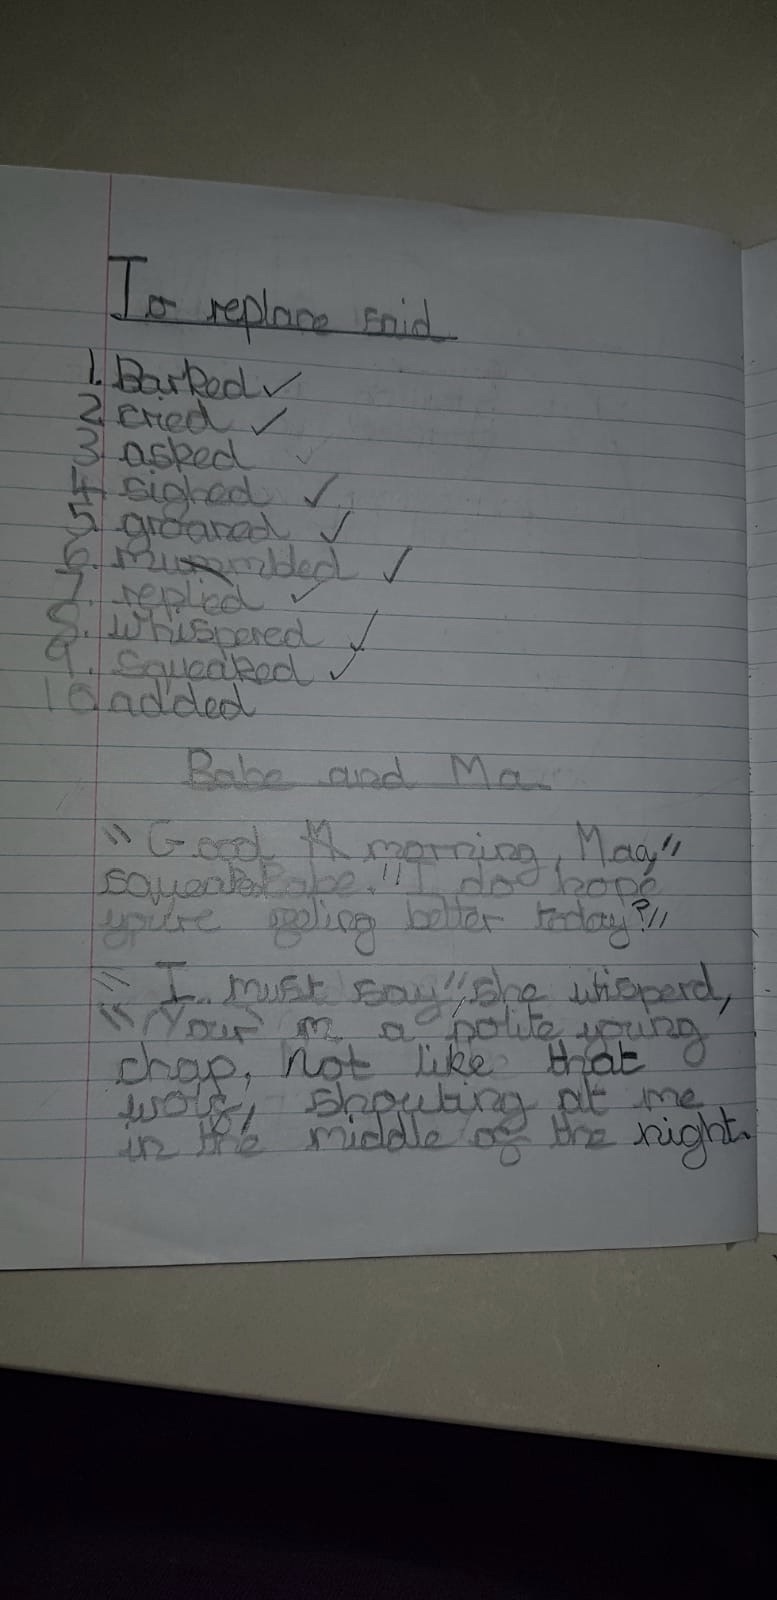 To replace said
1. Barked ✓
2. cried ✓
3. asked ✓
4. sighed ✓
5. groaned ✓
6. mumbled ✓
7. replied ✓
8. whispered ✓
9. squeaked ✓
10 added
Babe and Ma
"Good morning, Maa"
Babe. "I do hope
you're feeling better today?"
"I must say", she whisperd,
"Your a polite young
chap, not like that
wolf, shouting at me
in the middle of the night.